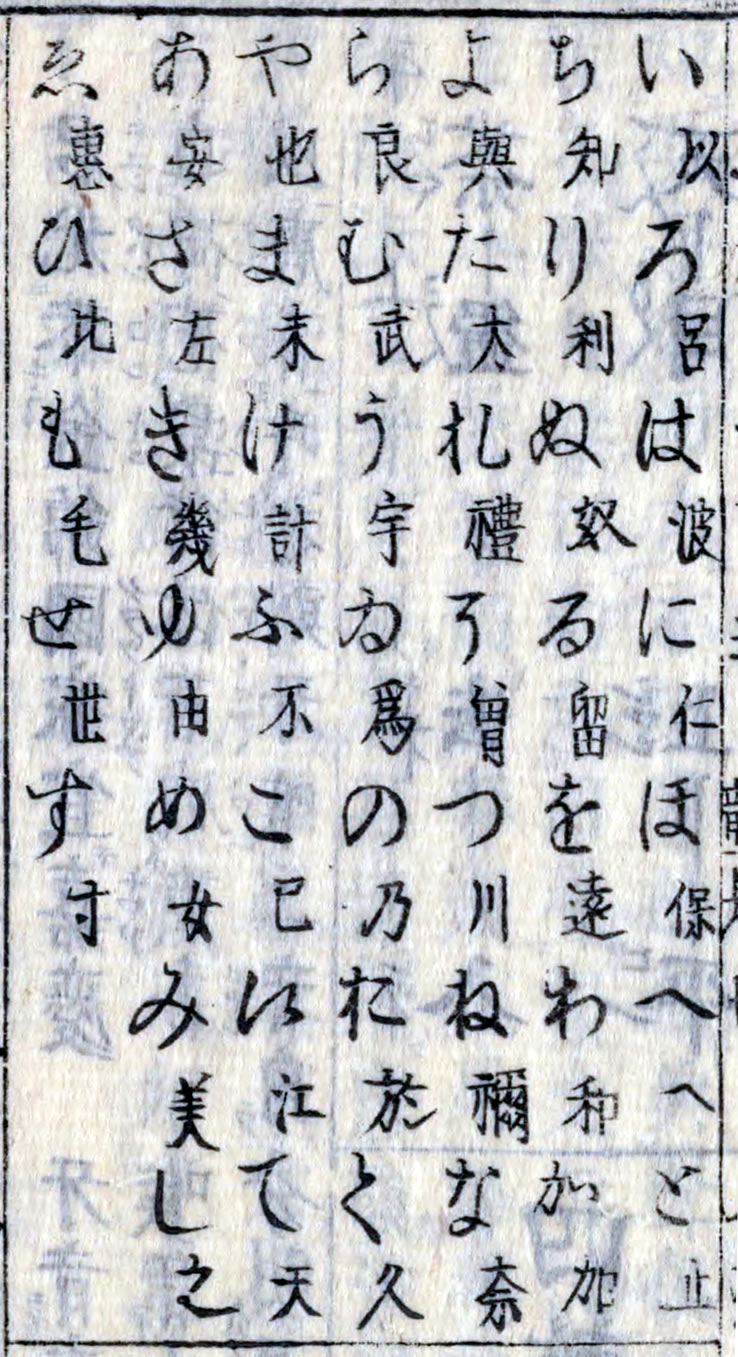 い以ろ呂は波に仁ほ保へへと止
ち知り利ぬ奴る留を遠わ和か加
よ與た太れ禮そ曽つ川ね禰な奈
ら良む武う宇ゐ爲の乃お於く久
や也ま末け計ふ不こ己え江て天
あ安さ左き幾ゆ由め女み美し之
ゑ惠ひ比も毛せ世す寸